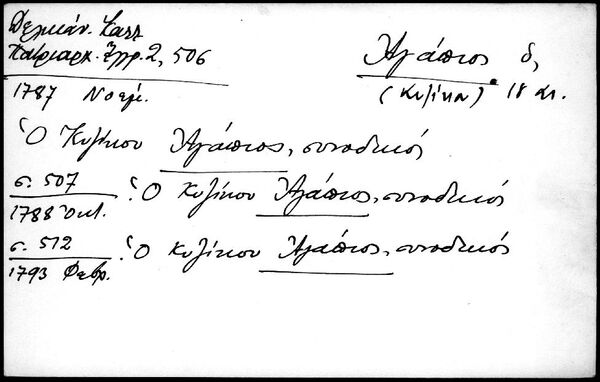 Δελικάν. Κατλ
Πατριαρχ. Ἔγγρ. 2, 506
Ἀγάπιος ὁ,
(Κυζίκου) 18 αι.
1787 Νοεμ.
Ὁ Κυζίκου Ἀγάπιος, συνοδικός
σ. 507
1788 Ὀκτ. : Ὁ Κυζίκου Ἀγάπιος, συνοδικός
σ. 512
1793 Φεβρ. : Ὁ Κυζίκου Ἀγάπιος, συνοδικός